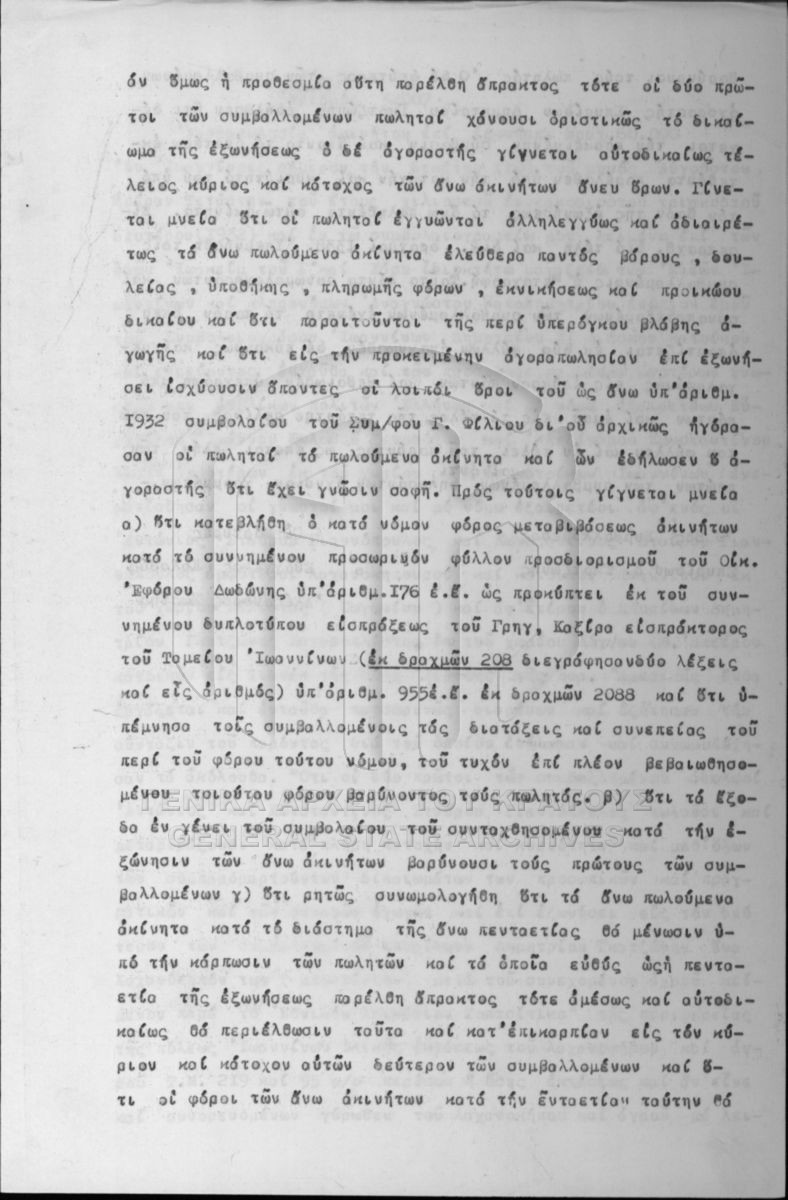 ἄν ὅμως ἡ προθεσμία αὕτη παρέλθη ἄπρακτος τότε οἱ δύο πρῶ-
τοι τῶν συμβαλλομένων πωληταί χάνουσι ὁριστικῶς τό δικαί-
ωμα τῆς ἐξωνήσεως ὁ δέ ἀγοραστής γίγνεται αὐτοδικαίως τέ-
λειος κύριος καί κάτοχος τῶν ἄνω ἀκινήτων ἄνευ ὅρων. Γίνε-
ται μνεία ὅτι οἱ πωληταί ἐγγυῶνται ἀλληλεγγύως καί ἀδιαιρέ-
τως τά ἄνω πωλούμενα ἀκίνητα ἐλεύθερα παντός βάρους , δου-
λείας , ὑποθήκης , πληρωμῆς φόρων , ἐκνικήσεως καί προικώου
δικαίου καί ὅτι παραιτοῦνται τῆς περί ὑπερόγκου βλάβης ἀ-
γωγῆς καί ὅτι εἰς τήν προκειμένην ἀγοραπωλησίαν ἐπί ἐξωνή-
σει ἰσχύουσιν ἅπαντες οἱ λοιπόι ὅροι τοῦ ὡς ἄνω ὑπ'ἀριθμ.
1932 συμβολαίου τοῦ Συμ/φου Γ. Φίλιου δι'οὗ ἀρχικῶς ἠγόρα-
σαν οἱ πωληταί τά πωλούμενα ἀκίνητα καί ὧν ἐδήλωσεν ὅ ἀ-
γοραστής ὅτι ἔχει γνῶσιν σαφῆ. Πρός τούτοις γίγνεται μνεία
α) ὅτι κατεβλήθη ὁ κατά νόμον φόρος μεταβιβάσεως ἀκινήτων
κατά τό συννημένον προσωρινόν φύλλον προσδιορισμοῦ τοῦ Οἰκ.
Ἐφόρου Δωδώνης ὑπ'ἀριθμ.176 ἐ.ἔ. ὡς προκύπτει ἐκ τοῦ συν-
νημένου δυπλοτύπου εἰσπράξεως τοῦ Γρηγ, Καξίρα εἰσπράκτορος
τοῦ Ταμείου Ἰωαννίνων (ἐκ δραχμῶν 208 διεγράφησανδύο λέξεις
καί εἷς ἀριθμός) ὑπ'ἀριθμ. 955ἐ.ἔ. ἐκ δραχμῶν 2088 καί ὅτι ὑ-
πέμνησα τοῖς συμβαλλομένοις τάς διατάξεις καί συνεπείας τοῦ
περί τοῦ φόρου τούτου νόμου, τοῦ τυχόν ἐπί πλέον βεβαιωθησο-
μένου τοιούτου φόρου βαρύνοντος τούς πωλητάς. β) ὅτι τά ἔξο-
δα ἐν γένει τοῦ συμβολαίου τοῦ συνταχθησομένου κατά τήν ἐ-
ξώνησιν τῶν ἄνω ἀκινήτων βαρύνουσι τούς πρώτους τῶν συμ-
βαλλομένων γ) ὅτι ρητῶς συνωμολογήθη ὅτι τά ἄνω πωλούμενα
ἀκίνητα κατά τό διάστημα τῆς ἄνω πενταετίας θά μένωσιν ὑ-
πό τήν κάρπωσιν τῶν πωλητῶν καί τά ὁποῖα εὐθύς ὡςἡ πεντα-
ετία τῆς ἐξωνήσεως παρέλθη ἄπρακτος τότε ἀμέσως καί αὐτοδι-
καίως θά περιέλθωσιν ταῦτα καί κατ'ἐπικαρπίαν εἰς τόν κύ-
ριον καί κάτοχον αὐτῶν δεύτερον τῶν συμβαλλομένων καί ὅ-
τι οἱ φόροι τῶν ἄνω ἀκινήτων κατά τήν ἕνταετίαν ταύτην θά
ΓΕΝΙΚΑ ΑΡΧΕΙΑ ΤΟΥ ΚΡΑΤΟΥΣ
GENERAL STATE ARCHIVES